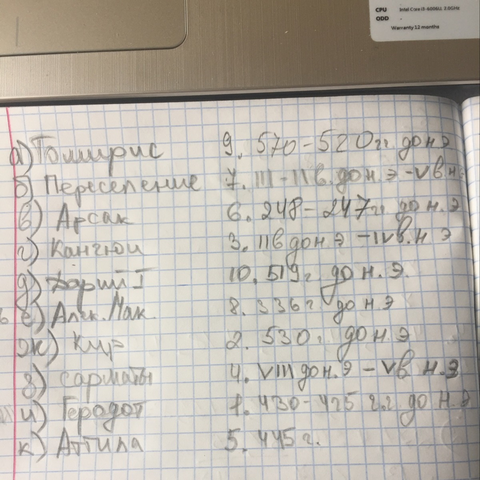 CPU Intel Core i3-6006U, 2.0GHz
ODD -
Warranty 12 months
а) Томирис 9. 570-520 гг. до н э
б) Переселение 7. III-II в. до н. э - V в н.
в) Арсак 6. 248-247 г. до н. э
г) Кангюи 3. II в до н э - IV в. н э
д) Дарий I 10. 519 г. до н. э.
е) Алек. Мак. 8. 336 г до н. э
ж) Кир 2. 530 г. до н. э
з) сарматы 4. VIII до н. э - V в н. э
и) Геродот 1. 430-425 г.г. до н. э
к) Аттила 5. 445 г.